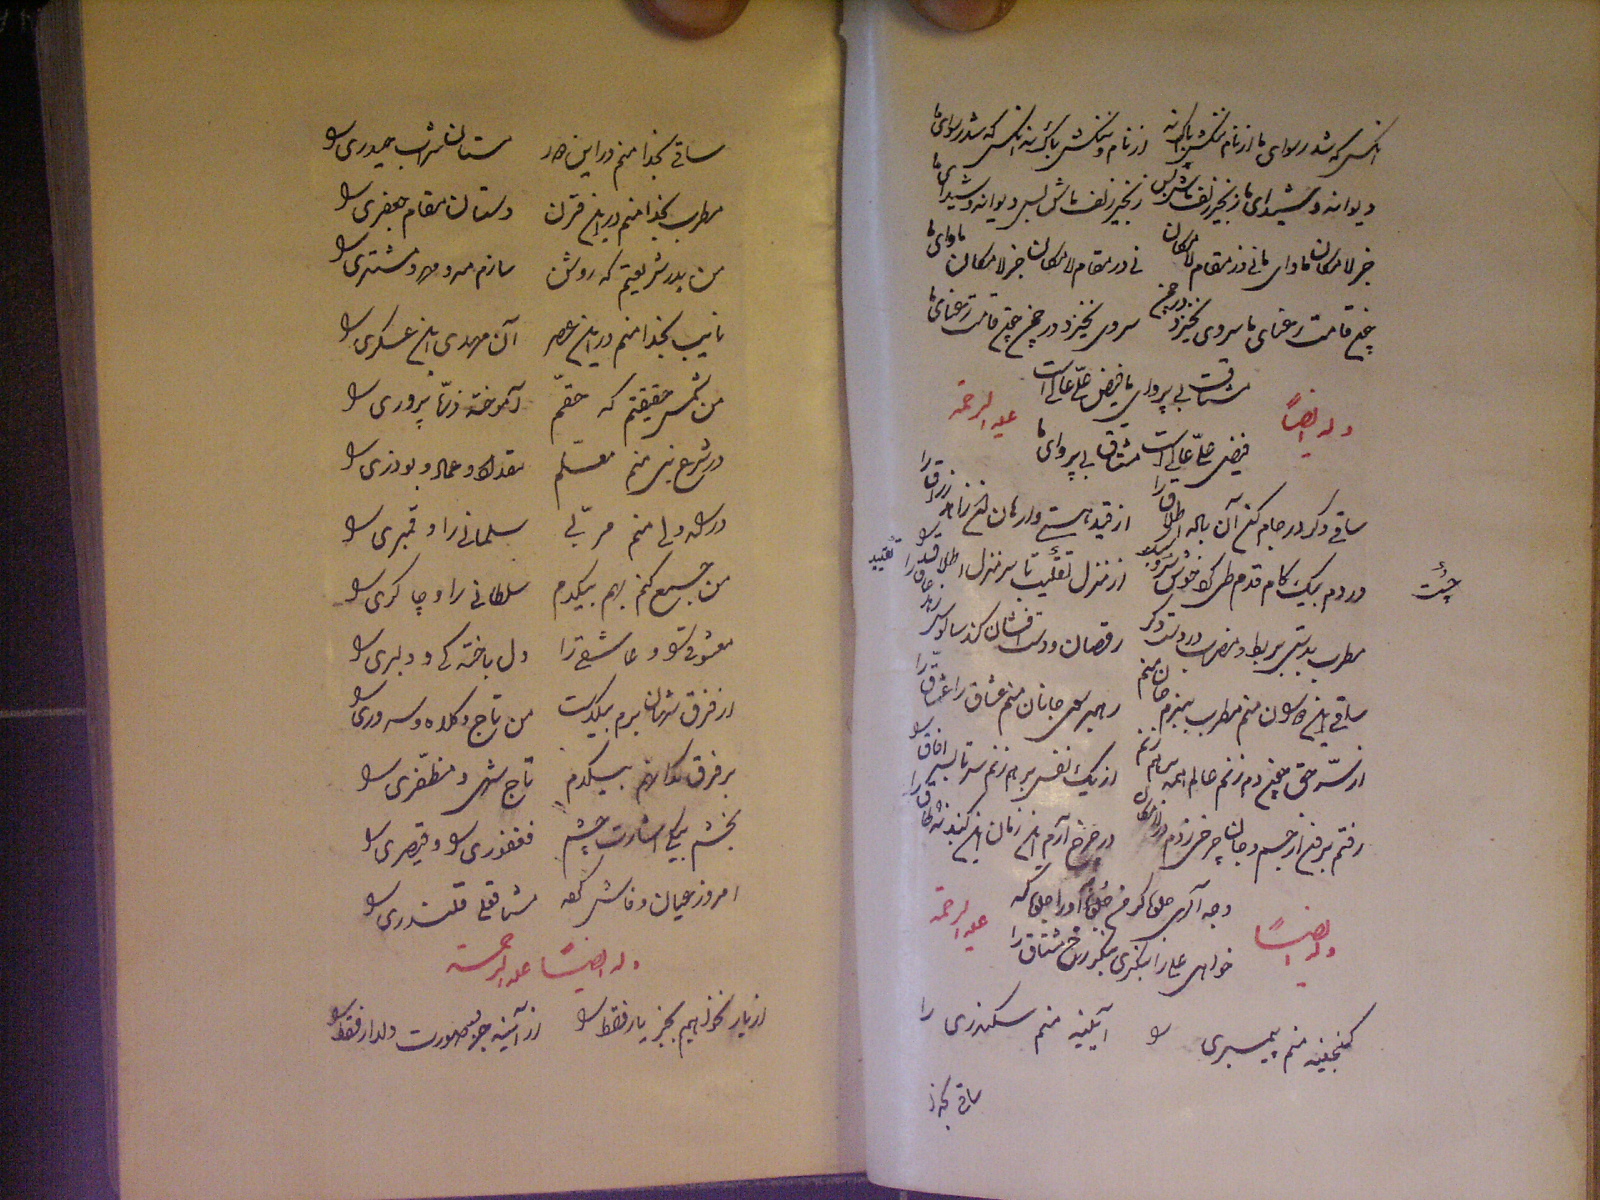 آنکس که شد رسوای ما از نام و ننگش باک نه از نام و ننگش باک نه آنکس که شد رسوای ما
دیوانه و شیدای ما زنجیر زلف ماش بس زنجیر زلف ماش بس دیوانه و شیدای ما
جز لامکان ماوای ما نی در مقام لامکان نی در مقام لامکان جز لامکان ماوای ما
چون قامت رعنای ما سروی نخیزد در چمن سروی نخیزد در چمن چون قامت رعنای ما
مشتاق بی پروای ما فیض علی عالی است
وله ایضاً علیه الرحمه
فیض علی عالی است مشتاق بی پروای ما
ساقی دگر در جام کن آن باده اطلاق را از قید هستی وارهان این زاهد زراق را
در دم بیک گام قدم طی کن خوش از منزل تقلید تا سر منزل اطلاق را
تقیید
مطرب بدستی بربط و مضراب در دست دگر رقصان و دست افشان کند سالوس
ساقی این منم مطرب ببزم جان منم رهبر سوی جانان منم عشاق را عشاق را
از سر حق چون دم زنم عالم همه بر هم زنم از یک نفس بر هم زنم سر تا بسر آفاق را
رفتم برون از جسم و جان چرخی زدم در لامکان در چرخ آرم این زمان این گنبد نه طاق را
وجه
وله ایضاً علیه الرحمه
خواهی علی را بنگری بنگر رخ مشتاق را
گنجینه منم پیمبری را آیینه منم سکندری را
ساقی بخدا
ساقی بخدا منم در این مستان شراب حیدری را
مطرب بخدا منم در این قرن دستان مقام جعفری را
من بدر شریعتم که روشن سازم مه و مهر و مشتری را
نایب بخدا منم در این عصر آن مهدی ابن عسکری را
من شمس حقیقتم که حقم آموخته ذره پروری را
در شرع نبی منم معلم مقداد و عمار و بوذری را
در ولی منم مربی سلمانی را و قمبری را
من جمع کنم بهم بیکدم سلطانی را و چاکری را
معشوقی را و عاشقی را دل باختگی و دلبری را
از فرق شهان برم بیکدست من تاج و کلاه و سروری را
بر فرق گدا نهم بیکدم تاج شهی و مظفری را
بخشم بیکی اشارت چشم فغفوری را و قیصری را
امروز عیان و فاش گفته مشتاق علی قلندری را
وله ایضاً علیه الرحمه
از یار نخواهیم بجز یار فقط را از آینه جز صورت دلدار فقط را